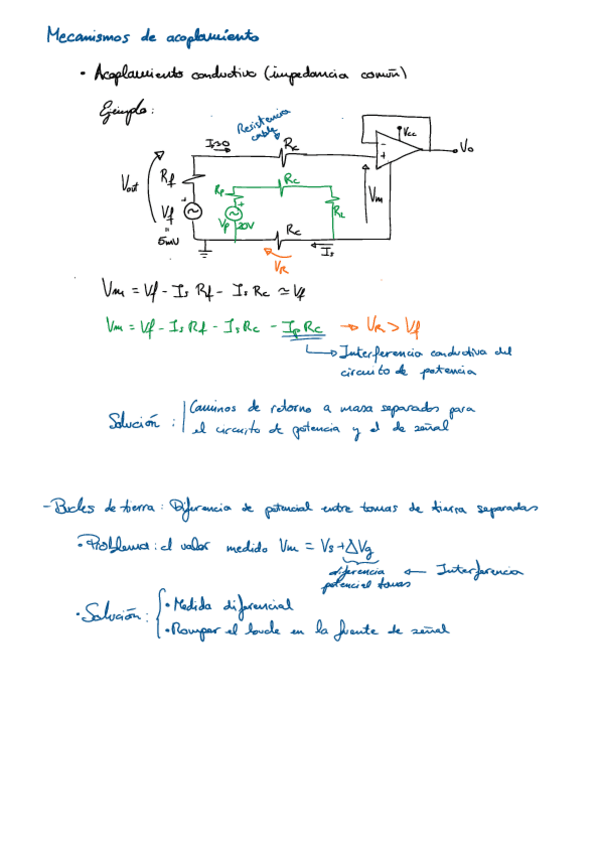 Mecanismos de acoplamiento
• Acoplamiento conductivo (impedancia común)
Ejemplo:
Resistencia
cable
Is≃0
Rc
Vcc
Vo
Vout
Rf
Rp
Rc
Vf
=
5mV
Vp
20V
RL
Vm
Rc
Is
VR
Vm = Vf - Is Rf - Is Rc ≃ Vf
Vm = Vf - Is Rf - Is Rc - Ip Rc → VR > Vf
Interferencia conductiva del
circuito de potencia
Solución: Caminos de retorno a masa separados para
el circuito de potencia y el de señal
- Bucles de tierra: Diferencia de potencial entre tomas de tierra separadas
• Problema: el valor medido Vm = Vs + ΔVg
diferencia ← Interferencia
potencial tomas
• Solución: • Medida diferencial
• Romper el bucle en la fuente de señal